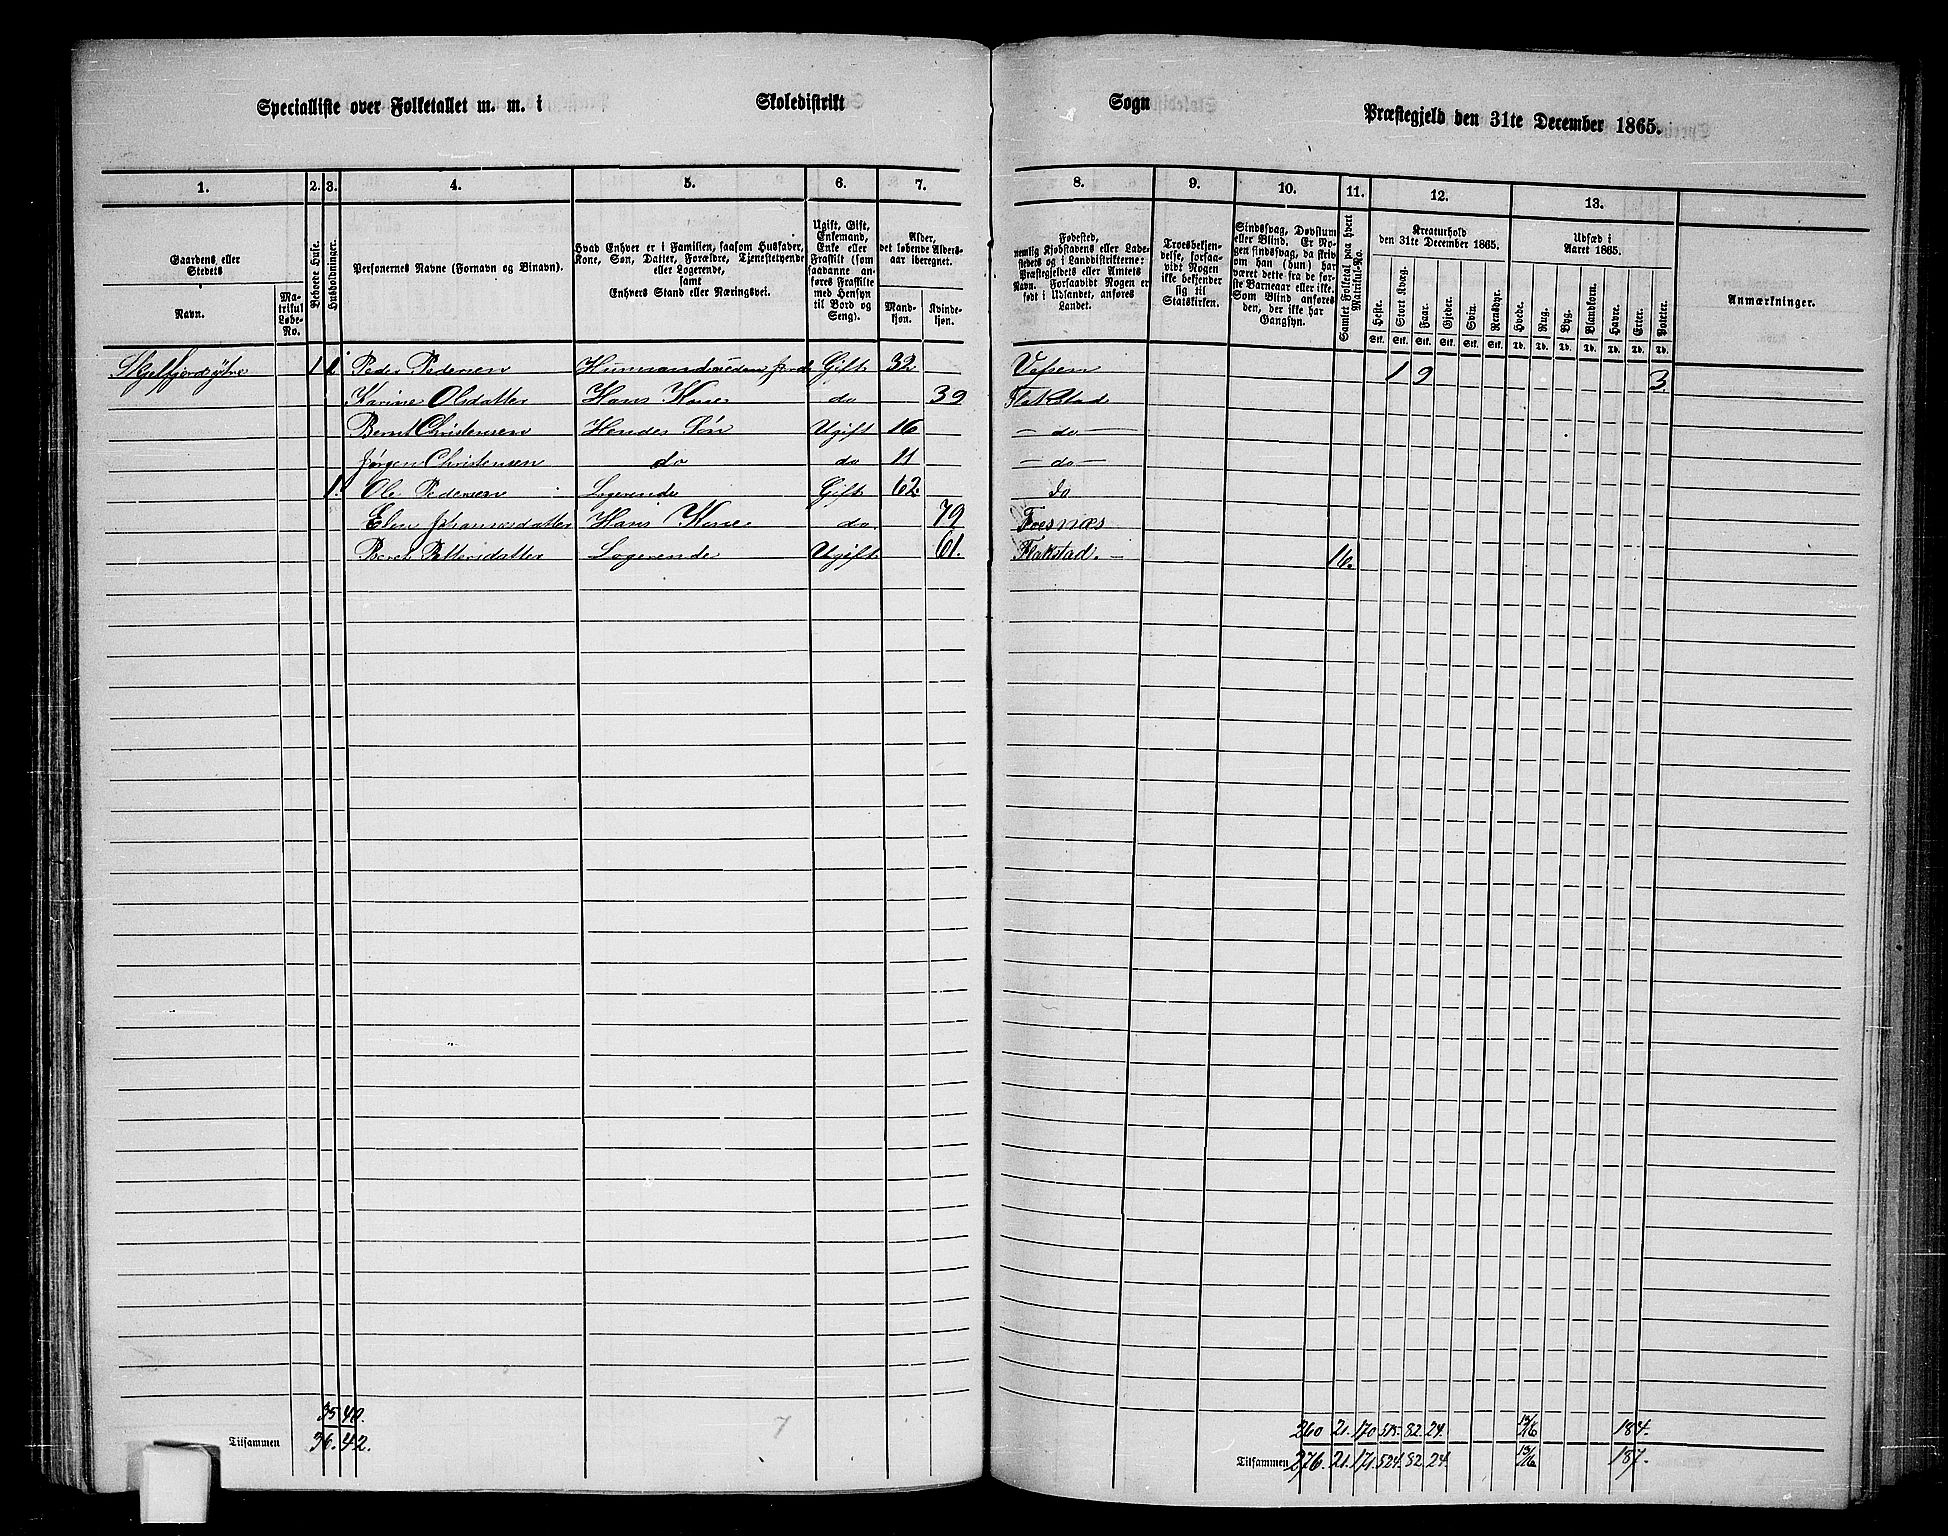 Specialliste over Folketallet m. m. i Skoledistrikt Sogn Præstegjeld den 31te December 1865.
1. 2. 3. 4. 5. 6. 7. 8. 9. 10. 11. 12. 13.
Gaardens eller Stedets
Navn.
Matrikul Løbe-No.
Beboede Huse.
Husholdninger.
Personernes Navne (Fornavn og Binavn).
Hvad Enhver er i Familien, saasom Husfader, Kone, Søn, Datter, Forældre, Tjenestetyende eller Logerende, samt Enhvers Stand eller Næringsvei.
Ugift, Gift, Enkemand, Enke eller Fraskilt (som saadanne anføres Fraskilte med Hensyn til Bord og Seng).
Alder, det løbende Alders-aar iberegnet.
Mand-kjøn.
Kvinde-kjøn.
Fødested, nemlig Kjøbstadens eller Ladestedets og i Landdistrikterne: Præstegjeldets eller Amtets Navn. Forsaavidt Nogen er født i Udlandet, anføres Landet.
Troesbekjendelse, forsaavidt Nogen ikke bekjender sig til Statskirken.
Sindssvag, Døvstum eller Blind. Er Nogen sindssvag, da skrives om han (hun) har været dette fra de første Barneaar eller ikke. Som Blind anføres den, der ikke har Gangsyn.
Samlet Folketal paa hvert Matrikul-No.
Kreaturhold den 31te December 1865.
Heste. Stort Kvæg. Faar. Gjeder. Svin. Rensdyr.
Stk. Stk. Stk. Stk. Stk. Stk.
Udsæd i Aaret 1865.
Hvede. Rug. Byg. Blandkorn. Havre. Erter. Poteter.
Td. Td. Td. Td. Td. Td. Td.
Anmærkninger.
1 1 Peder Pedersen Gift 32 Vefsen 1 9 3
Karine Olsdatter Hans Kone do 39 Flakstad
Bernt Christensen Hendes Søn Ugift 16 - do -
Jørgen Christensen do do 11 - do -
1. Ole Pedersen Logerende Gift 62. do
Elen Johannesdatter Hans Kone do 79 Foesnæs
Beret Pettersdatter Logerende Ugift 61. Flakstad. 16.
35 40. 260 21. 170 515. 82. 24. 184.
Tilsammen 36. 42. Tilsammen 276. 21. 171. 524. 82. 24. 187.
7